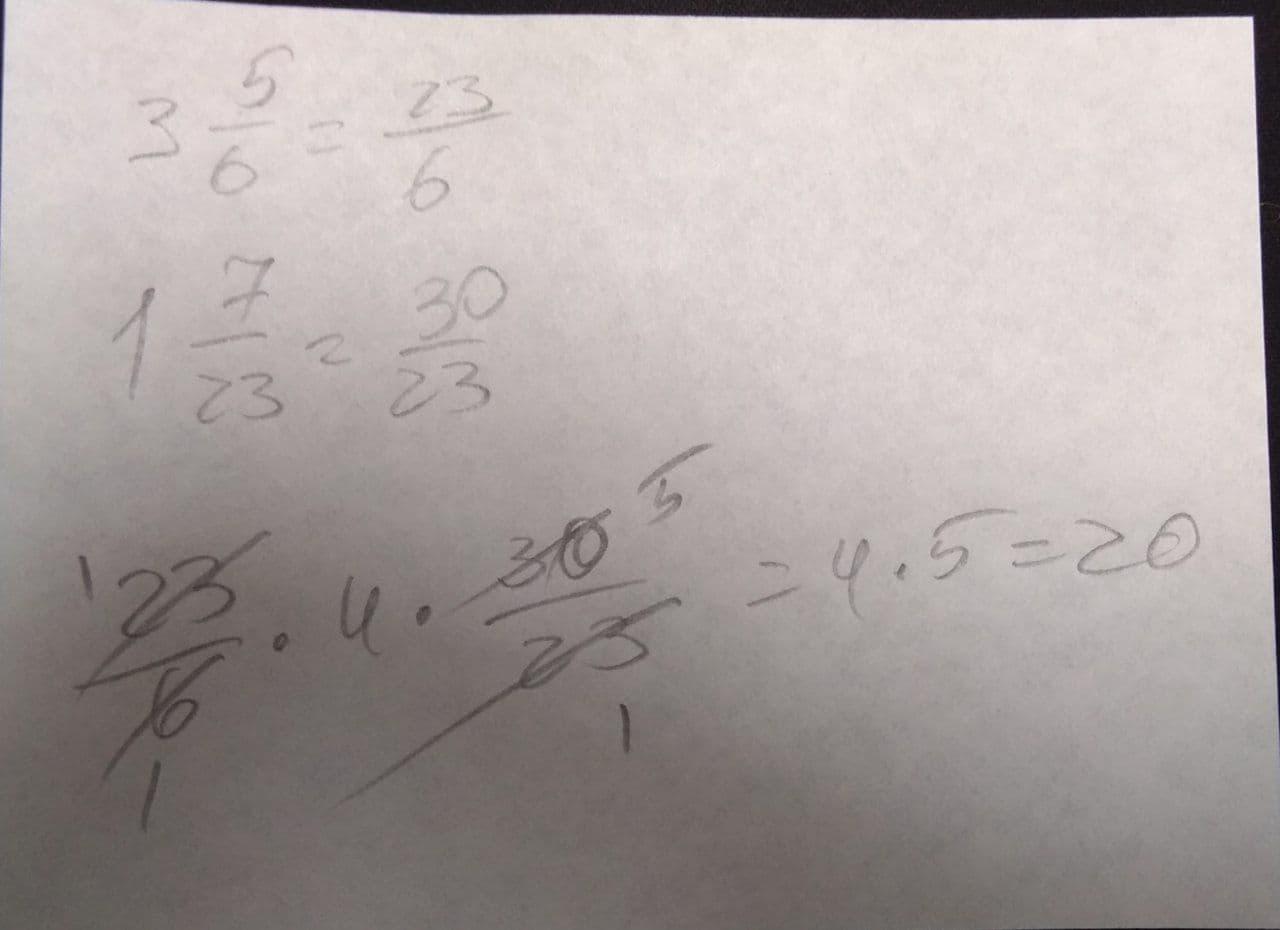 3 5/6 = 23/6
1 7/23 = 30/23
1 23/6 1 · 4 · 30/23 5 1 = 4 . 5 = 20